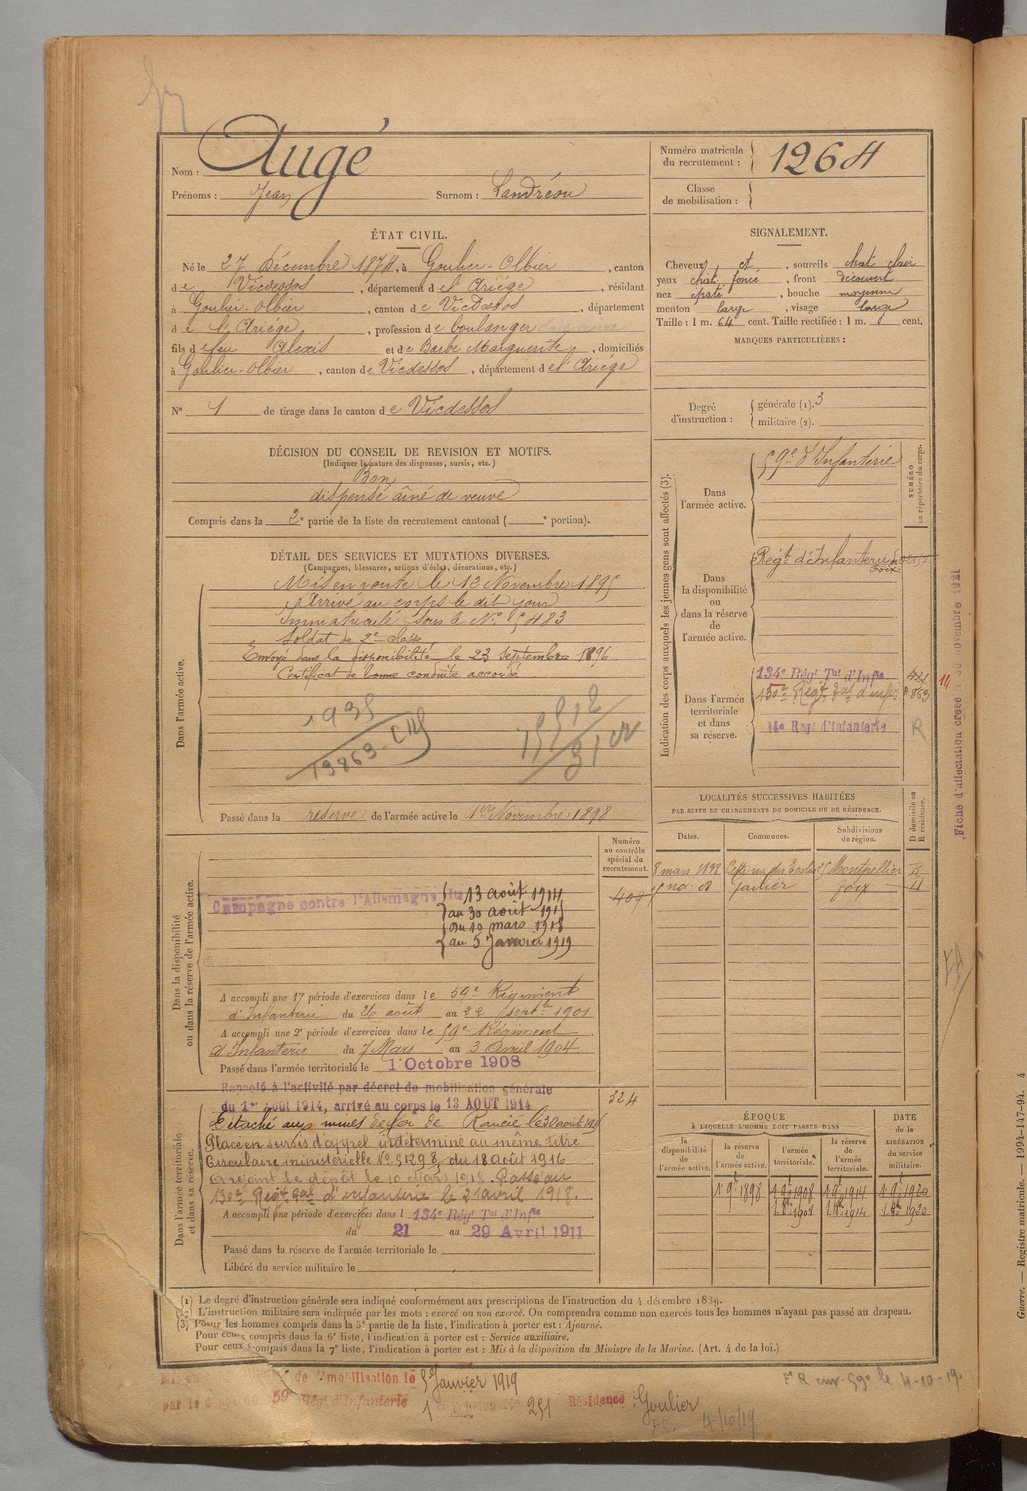 Nom : Augé
Prénoms : Jean Surnom : Landréou
Numéro matricule du recrutement : 1264
Classe de mobilisation :
ÉTAT CIVIL.
Né le 27 Décembre 1874, à Goulier-Olbier, canton
de Vicdessos, département de l'Ariège, résidant
à Goulier-Olbier, canton de Vicdessos, département
de l'Ariège, profession de boulanger
fils de feu Alexis et de Barbe Marguerite, domiciliés
à Goulier-Olbier, canton de Vicdessos, département de l'Ariège
N° 1 de tirage dans le canton de Vicdessos
SIGNALEMENT.
Cheveux et, sourcils chat. clair
yeux chat. foncé, front découvert
nez épaté, bouche moyenne
menton large, visage large
Taille : 1 m. 64 cent. Taille rectifiée : 1 m. cent.
MARQUES PARTICULIÈRES :
Degré d'instruction : générale (1). 3
militaire (2).
DÉCISION DU CONSEIL DE REVISION ET MOTIFS.
(Indiquer la nature des dispenses, sursis, etc.)
Bon
dispensé aîné de veuve
Compris dans la 2e partie de la liste du recrutement cantonal ( e portion).
DÉTAIL DES SERVICES ET MUTATIONS DIVERSES.
(Campagnes, blessures, actions d'éclat, décorations, etc.)
Dans l'armée active.
Mis en route le 13 Novembre 1895
Arrivé au corps le dit jour
Immatriculé sous le N° 5483
Soldat de 2e classe
Envoyé dans la disponibilité le 23 Septembre 1896
Certificat de bonne conduite accordé
Passé dans la réserve de l'armée active le 1er Novembre 1898
Indication des corps auxquels les jeunes gens sont affectés (3).
NUMÉRO au répertoire du corps.
Dans l'armée active.
59e d'Infanterie
Dans la disponibilité ou dans la réserve de l'armée active.
Régt d'Infanterie de Foix
Dans l'armée territoriale et dans sa réserve.
134e Régt Tal d'Infie
130e Régt Tal d'infie
14e Régt d'Infanterie
R
Fiche d'affectation créée le 30 novembre 1921
LOCALITÉS SUCCESSIVES HABITÉES
PAR SUITE DE CHANGEMENTS DE DOMICILE OU DE RÉSIDENCE.
Dates. Communes. Subdivisions de région. D domicile ou R résidence.
8 mars 1898 Cette rue des Ecoles 25 Montpellier R
nov 08 Goulier Foix
Dans la disponibilité ou dans la réserve de l'armée active.
Numéro au contrôle spécial du recrutement.
Campagne contre l'Allemagne du 13 août 1914
au 30 août 1915
Du 10 mars 1918
au 5 Janvier 1919
A accompli une 1re période d'exercices dans le 59e Régiment
d'Infanterie du 26 août au 22 septbre 1901
A accompli une 2e période d'exercices dans le 59e Régiment
d'Infanterie du 7 Mars au 3 Avril 1904
Passé dans l'armée territoriale le 1 Octobre 1908
Dans l'armée territoriale et dans sa réserve.
Rappelé à l'activité par décret de mobilisation générale
du 1er Août 1914, arrivé au corps le 13 AOUT 1914
324
Détaché aux mines de fer de Rancié le 30 août 1915
Placé en sursis d'appel indéterminé au même titre
Circulaire ministérielle N° 51298 du 18 août 1916
A rejoint le dépôt le 10 Mars 1918. Passé au
130e Régt Tal d'infanterie le 21 avril 1918.
A accompli une période d'exercices dans le 134e Régt Tal d'Infie
du 21 au 29 Avril 1911
Passé dans la réserve de l'armée territoriale le
Libéré du service militaire le
ÉPOQUE
À LAQUELLE L'HOMME DOIT PASSER DANS
DATE de la LIBÉRATION du service militaire.
la disponibilité de l'armée active. la réserve de l'armée active. l'armée territoriale. la réserve de l'armée territoriale.
1 9e 1898 1 9e 1908 1 9e 1914 1 9e 1920
(1) Le degré d'instruction générale sera indiqué conformément aux prescriptions de l'instruction du 4 décembre 1889.
(2) L'instruction militaire sera indiquée par les mots : exercé ou non exercé. On comprendra comme non exercés tous les hommes n'ayant pas passé au drapeau.
(3) Pour les hommes compris dans la 5e partie de la liste, l'indication à porter est : Ajourné.
Pour ceux compris dans la 6e liste, l'indication à porter est : Service auxiliaire.
Pour ceux compris dans la 7e liste, l'indication à porter est : Mis à la disposition du Ministre de la Marine. (Art. 4 de la loi.)
de démobilisation le 5 Janvier 1919
par le dépôt du 59e Régt d'Infanterie
1 Echelon N° 251 Résidence Goulier
FR sur 59e le 4-10-19.
FR. 4/10/19
Guerre. — Registre matricule. — 1994-147-94. 4